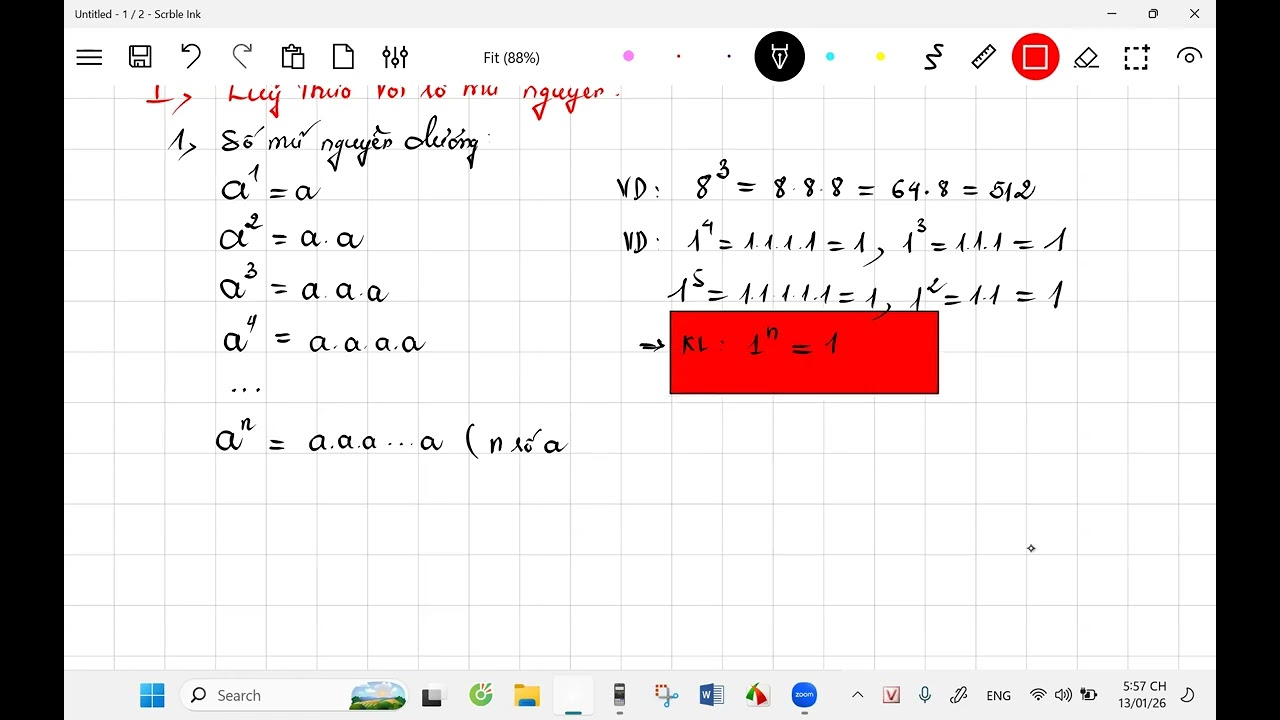 Untitled - 1 / 2 - Scrble Ink
Fit (88%)
I, Luỹ thừa với số mũ nguyên.
1, Số mũ nguyên dương:
a¹ = a
a² = a.a
a³ = a.a.a
a⁴ = a.a.a.a
...
aⁿ = a.a.a...a (n số a
VD: 8³ = 8.8.8 = 64.8 = 512
VD: 1⁴ = 1.1.1.1 = 1, 1³ = 1.1.1 = 1
1⁵ = 1.1.1.1.1 = 1, 1² = 1.1 = 1
⇒ KL: 1ⁿ = 1
Search
zoom
ENG
5:57 CH
13/01/26